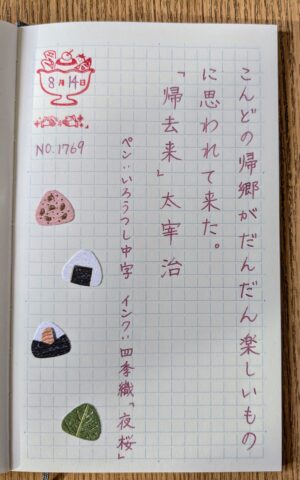 こんどの帰郷がだんだん楽しいもの
に思われて来た。
「帰去来」太宰治
ペン:いろうつし中字 インク:四季織「夜桜」
8月14日
NO.1769